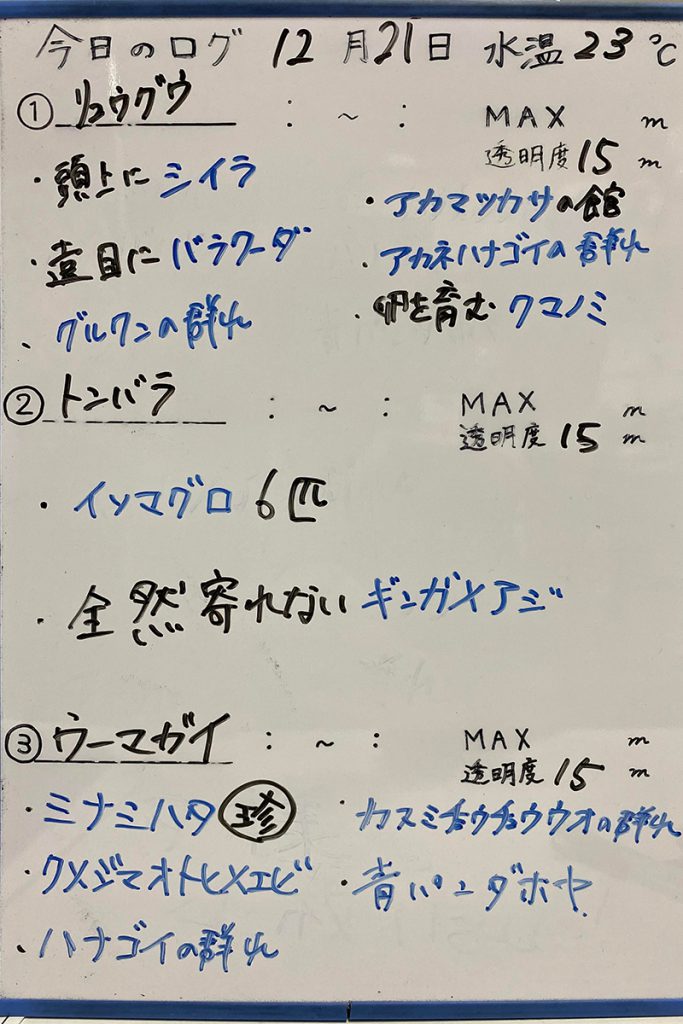 今日のログ 12月21日 水温23℃
① リュウグウ : ~ : MAX m
透明度 15 m
・頭上にシイラ
・アカマツカサの館
・遠目にバラクーダ
・アカネハナゴイの群れ
、グルクンの群れ
卵を育むクマノミ
② トンバラ : ~ : MAX m
透明度 15 m
・イソマグロ 6匹
・全然寄れないギンガメアジ
③ ウーマガイ : ~ : MAX m
透明度 15 m
・ミナミハタ 珍
・カスミチョウチョウウオの群れ
・クメジマオトヒメエビ
・青パンダホヤ
・ハナゴイの群れ